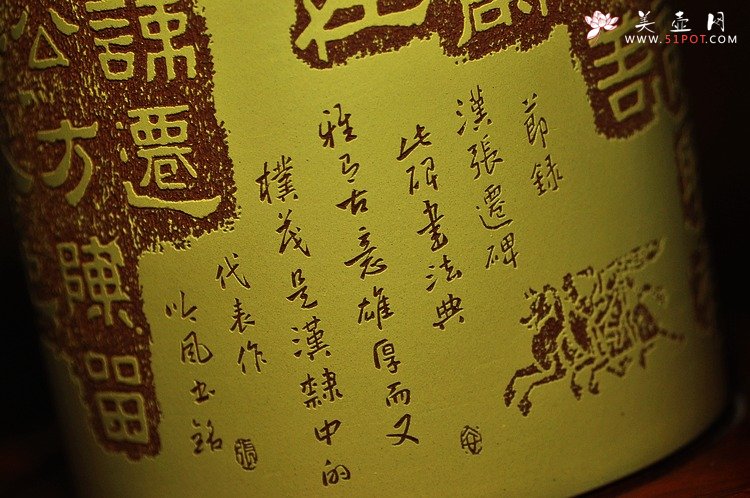 美壶网
WWW.51POT.COM
節録
漢張遷碑
此碑書法典
雅有古意雄厚而又
樸茂是漢隸中的
代表作
吟風書銘
張
諱遷
公方
陳留